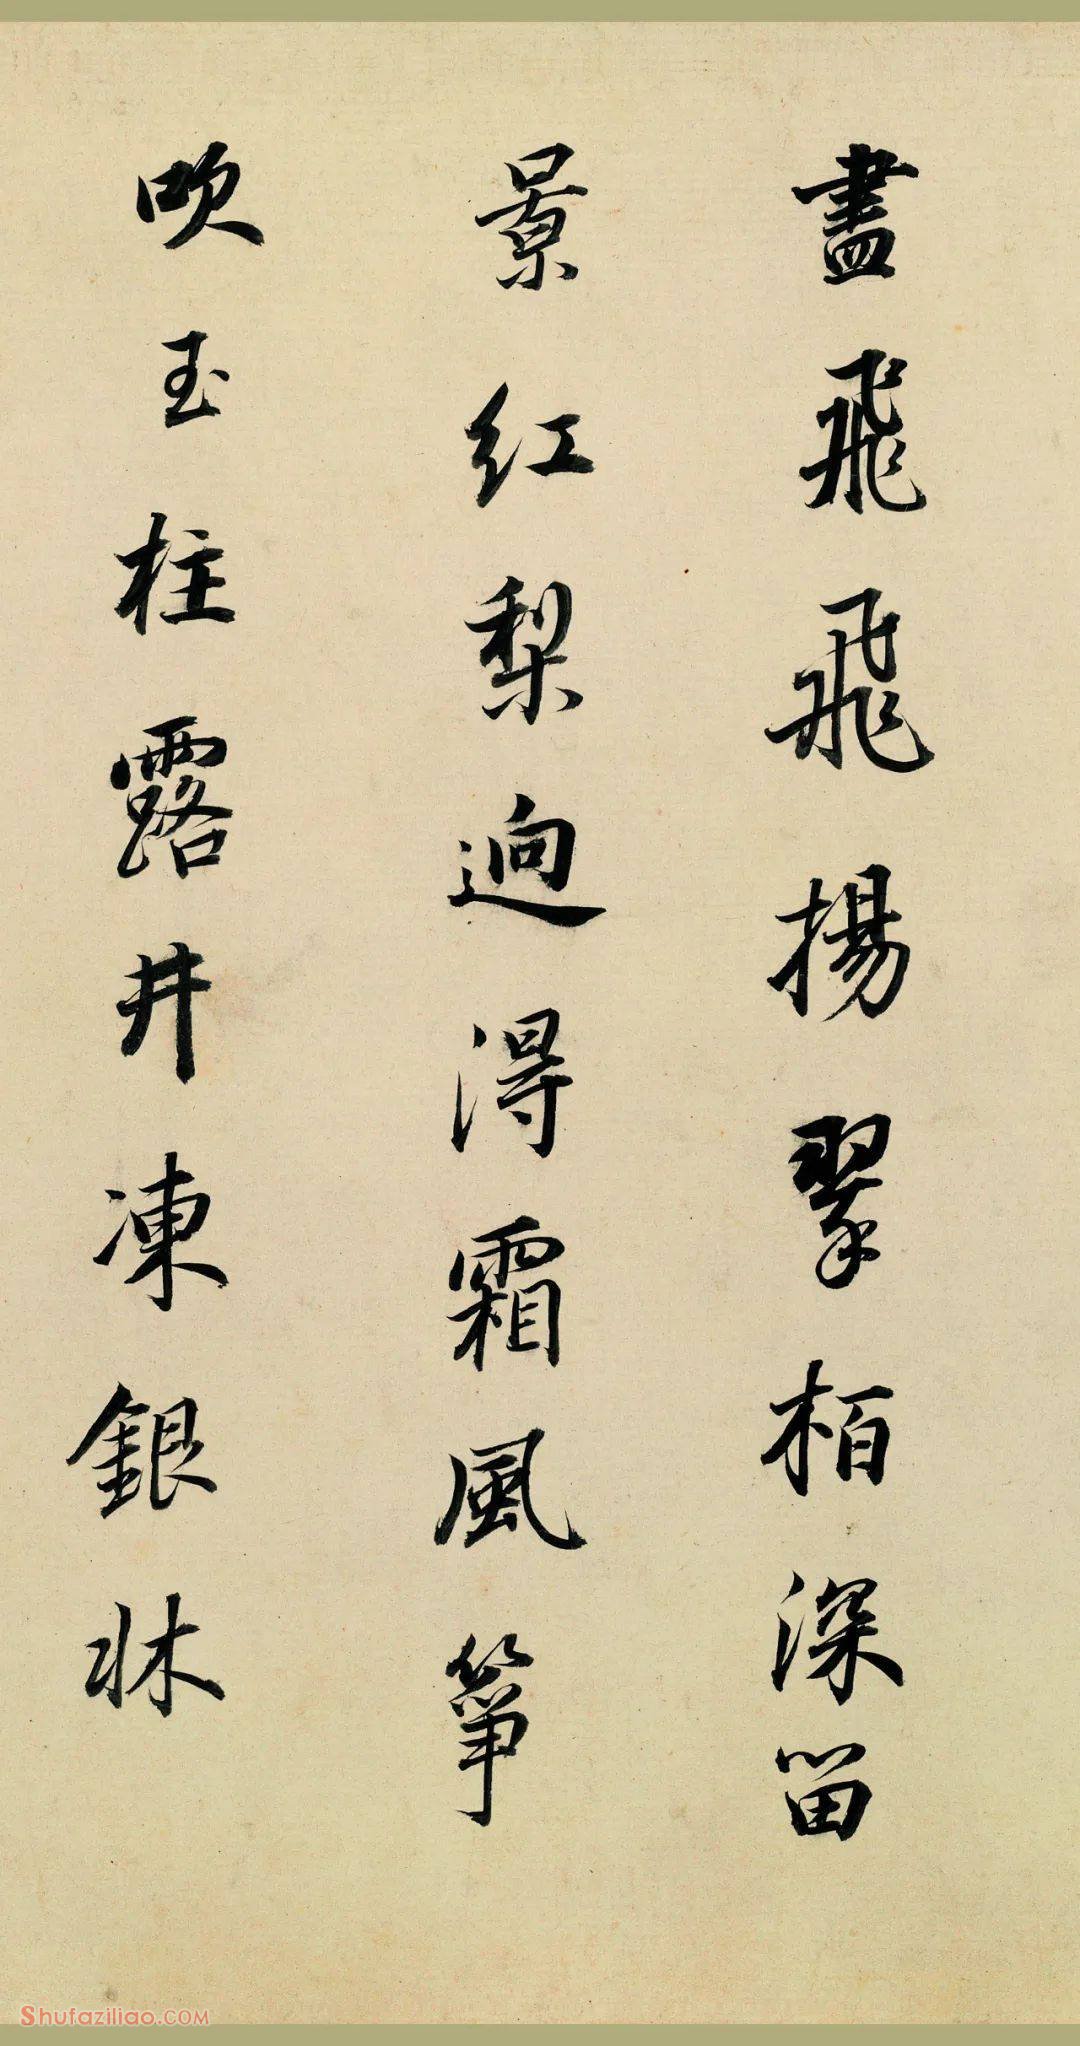 盡飛飛揚翠栢深留
景红梨迥淂霜風筝
吹玉柱露井凍銀牀
Shufaziliao.COM